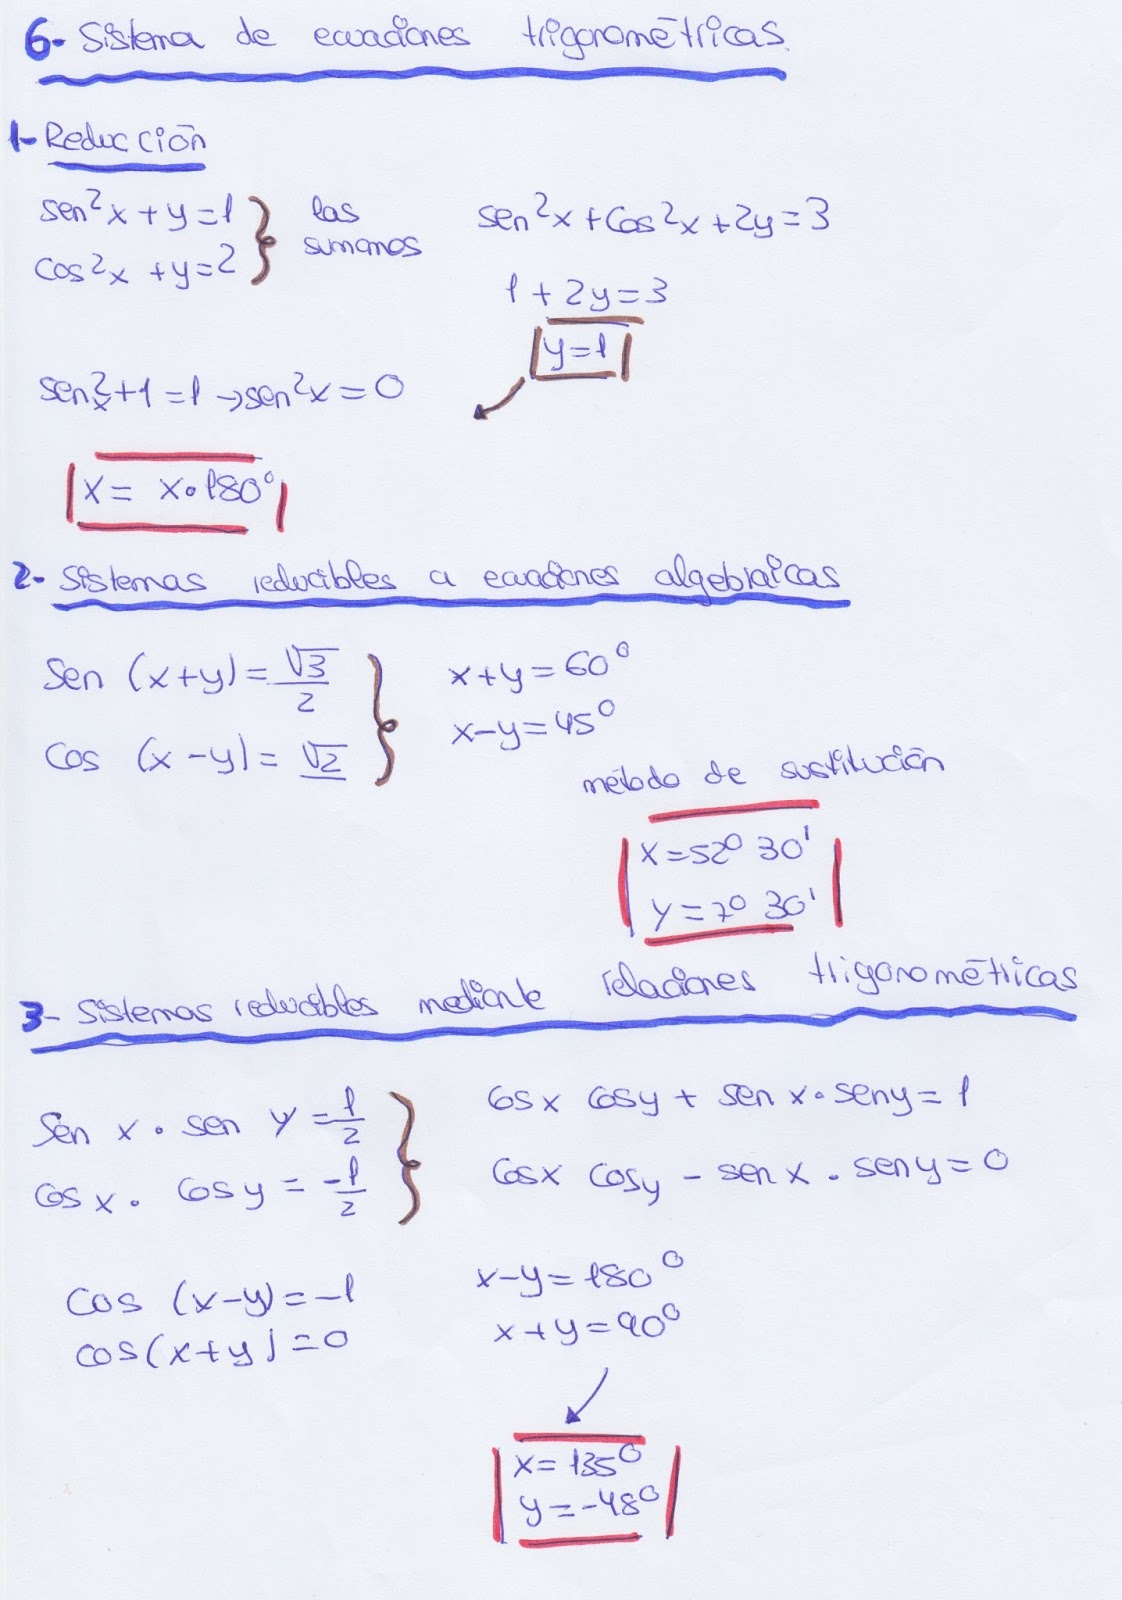 6- Sistema de ecuaciones trigonométricas.
1- Reducción
sen²x + y = 1
cos²x + y = 2
las sumamos
sen²x + cos²x + 2y = 3
1 + 2y = 3
y = 1
sen²x + 1 = 1 → sen²x = 0
x = x · 180°
2- Sistemas reducibles a ecuaciones algebraicas
Sen (x+y) = √3/2
Cos (x-y) = √2
x+y = 60°
x-y = 45°
método de sustitución
x = 52° 30'
y = 7° 30'
3- Sistemas reducibles mediante relaciones trigonométricas
Sen x · sen y = 1/2
Cos x · Cos y = -1/2
Cos x Cos y + sen x · sen y = 1
Cos x Cos y - sen x · sen y = 0
Cos (x-y) = -1
cos (x+y) = 0
x-y = 180°
x+y = 90°
x = 135°
y = -48°